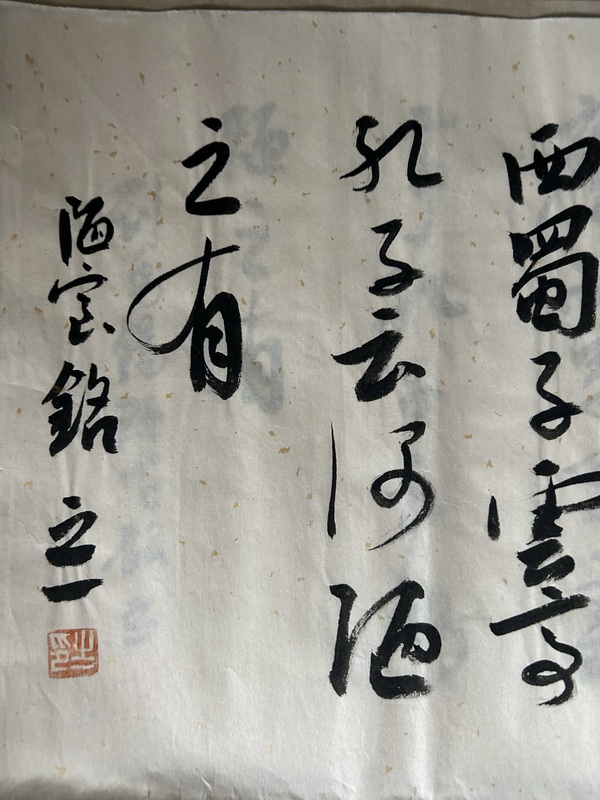 西蜀子雲亭
孔子云何陋
之有
陋室銘 之一